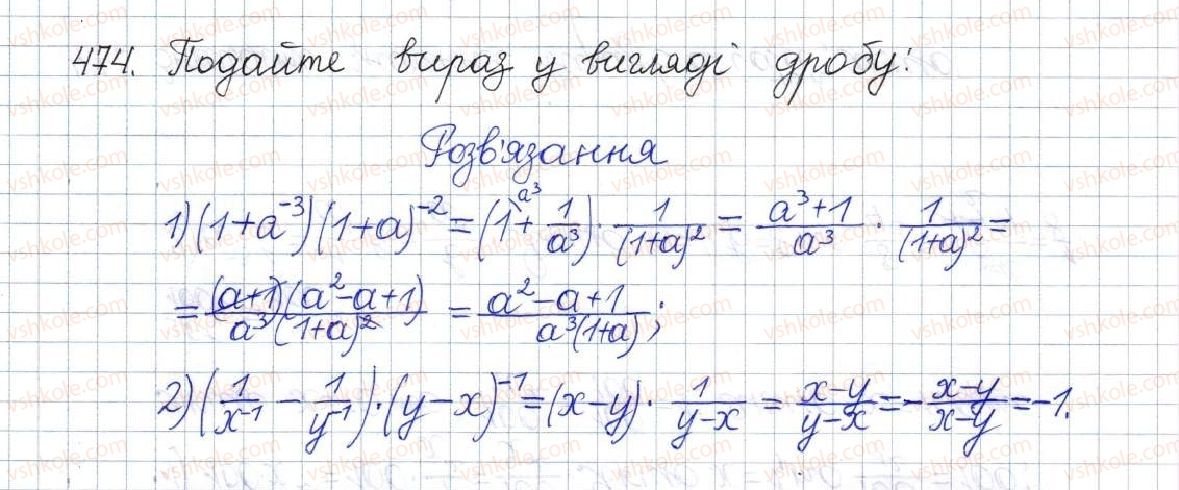 474. Подайте вираз у вигляді дробу:
Розв'язання
1) (1+a⁻³)(1+a)⁻² = (1^{\a³} + 1/a³) · 1/(1+a)² = (a³+1)/a³ · 1/(1+a)² =
= (a+1)(a²-a+1)/(a³(1+a)²) = (a²-a+1)/(a³(1+a));
2) (1/x⁻¹ - 1/y⁻¹) · (y-x)⁻¹ = (x-y) · 1/(y-x) = (x-y)/(y-x) = -(x-y)/(x-y) = -1.